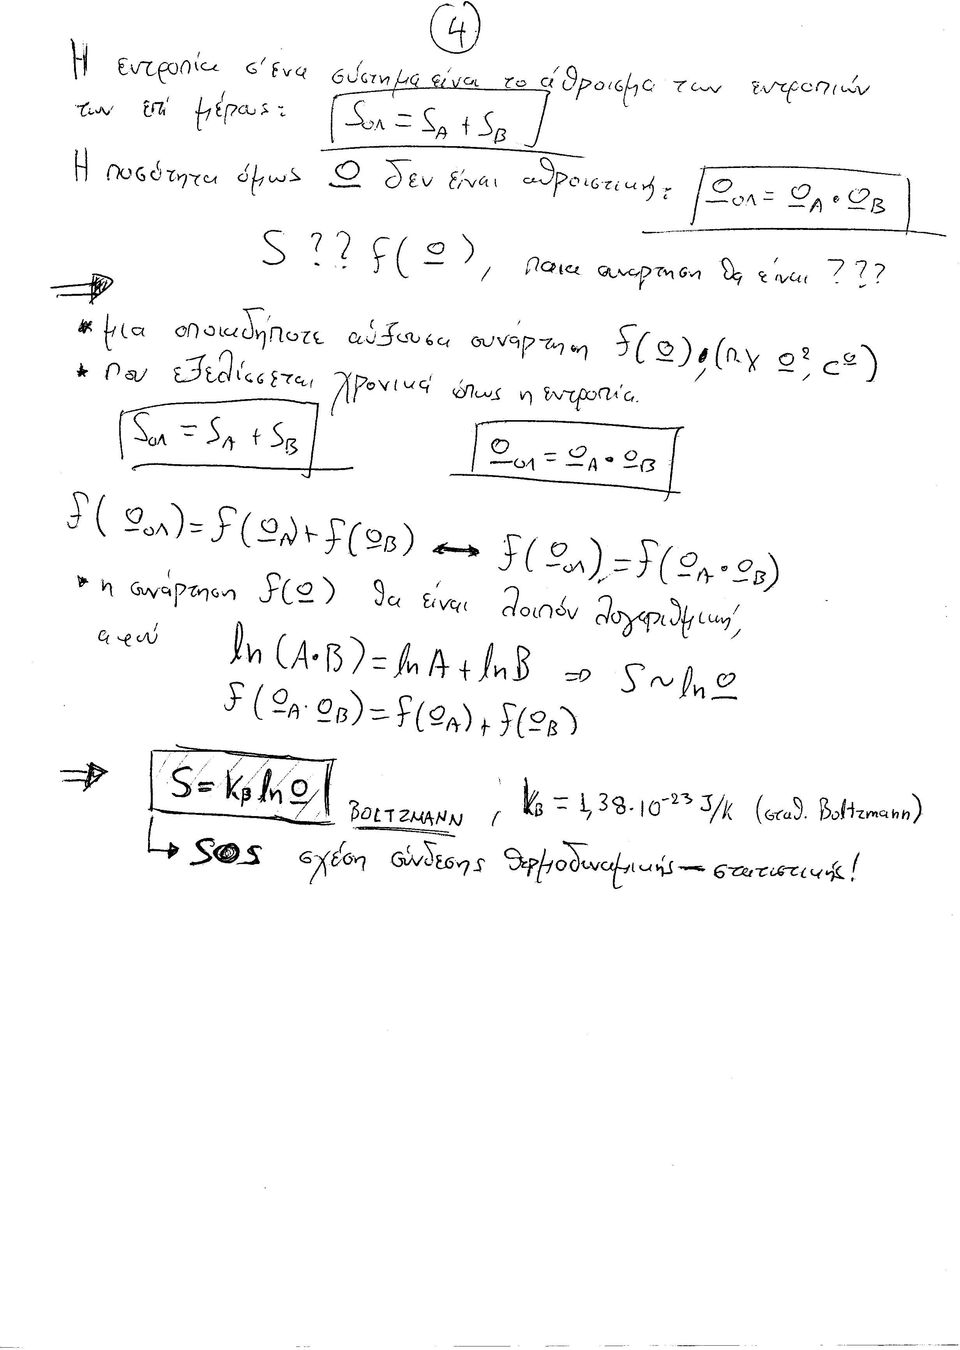 4
Η εντροπία σ' ένα σύστημα είναι το άθροισμα των εντροπιών
των επί μέρους: Sολ = SA + SB
Η ποσότητα όμως Ω δεν είναι αθροιστική: Ωολ = ΩA · ΩB
S ?? f(Ω), ποια συνάρτηση θα είναι ???
* μια οποιαδήποτε αύξουσα συνάρτηση f(Ω), (πχ Ω², c^Ω)
* που εξελίσσεται χρονικά όπως η εντροπία.
Sολ = SA + SB Ωολ = ΩA · ΩB
f(Ωολ) = f(ΩA) + f(ΩB) ↔ f(Ωολ) = f(ΩA · ΩB)
* η συνάρτηση f(Ω) θα είναι λοιπόν λογαριθμική,
αφού ln(A·B) = lnA + lnB ⇒ S ~ lnΩ
f(ΩA · ΩB) = f(ΩA) + f(ΩB)
⇒ S = kB lnΩ BOLTZMANN, kB = 1,38·10⁻²³ J/K (σταθ. Boltzmann)
↳ SOS σχέση σύνδεσης θερμοδυναμικής – στατιστικής!